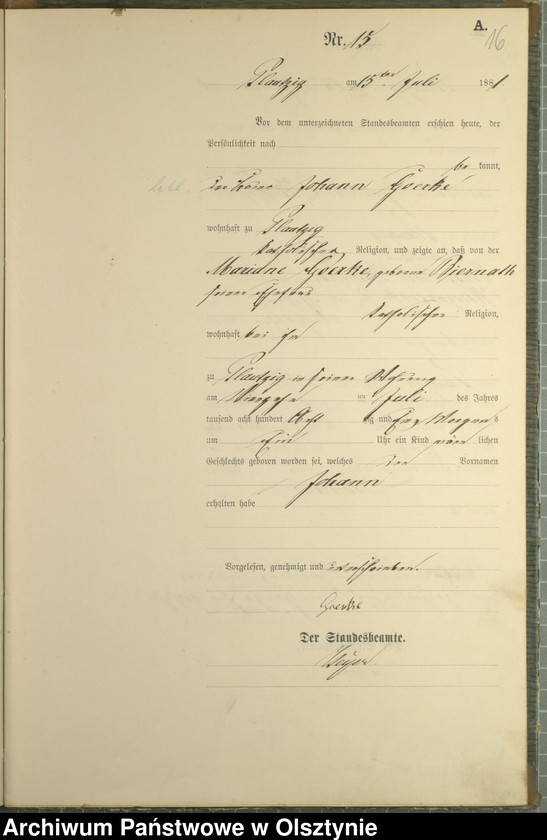 A.
16
Nr. 15
Plautzig am 15ten Juli 1881
Vor dem unterzeichneten Standesbeamten erschien heute, der
Persönlichkeit nach
be kannt,
der Johann Goerke
wohnhaft zu Plautzig
katholischer Religion, und zeigte an, daß von der
Marianne Goerke, geborene Biernath
seiner Ehefrau
katholischer Religion,
wohnhaft bei ihm
zu Plautzig in seiner Wohnung
am vierzehn ten Juli des Jahres
tausend acht hundert acht zig und Ein, Morgens
um Ein Uhr ein Kind männ lichen
Geschlechts geboren worden sei, welches den Vornamen
Johann
erhalten habe
Vorgelesen, genehmigt und unterschrieben.
Goerke
Der Standesbeamte.
Archiwum Państwowe w Olsztynie